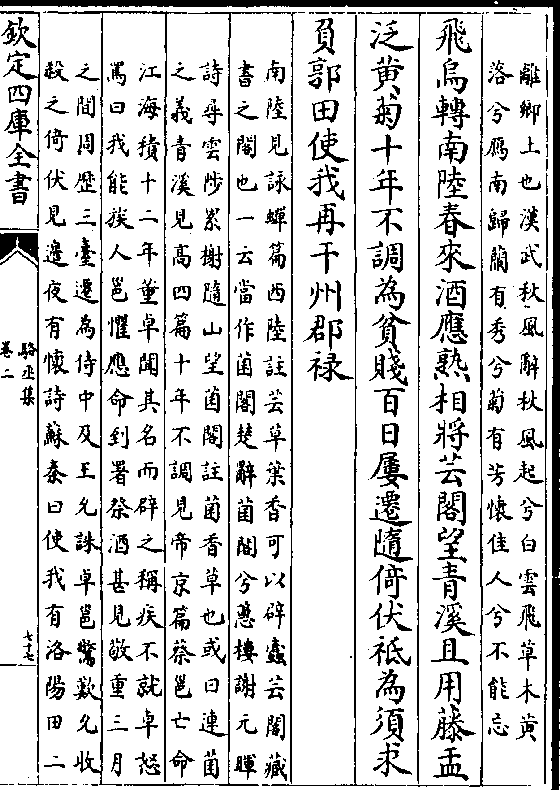 離鄉土也漢武秋風辭秋風起兮白雲飛草木黃
洛兮鴈南歸蘭有秀兮菊有芳懷佳人兮不能忘
飛烏轉南陸春來酒應熟相將芸閣望青溪且用藤盃
泛黄菊十年不調為貧賤百日屢遷隨倚伏祗為須求
負郭田使我再干州郡禄
南陸見詠蟬篇西陸註芸草葉香可以辟蠧芸閣藏
書之閣也一云當作菌閣楚辭菌閣兮蕙樓謝元暉
詩尋雲陟累榭隨山望菌閣註菌香草也或曰連菌
之義青溪見髙四篇十年不調見帝京篇蔡邕亡命
江海積十二年董卓聞其名而辟之稱疾不就卓怒
罵曰我能族人邕懼應命到署祭酒甚見敬重三月
之間周歴三臺遷為侍中及王允誅卓邕驚歎允收
殺之倚伏見邊夜有懷詩蘇秦曰使我有洛陽田二
欽定四庫全書
駱丞集
卷二
七十七